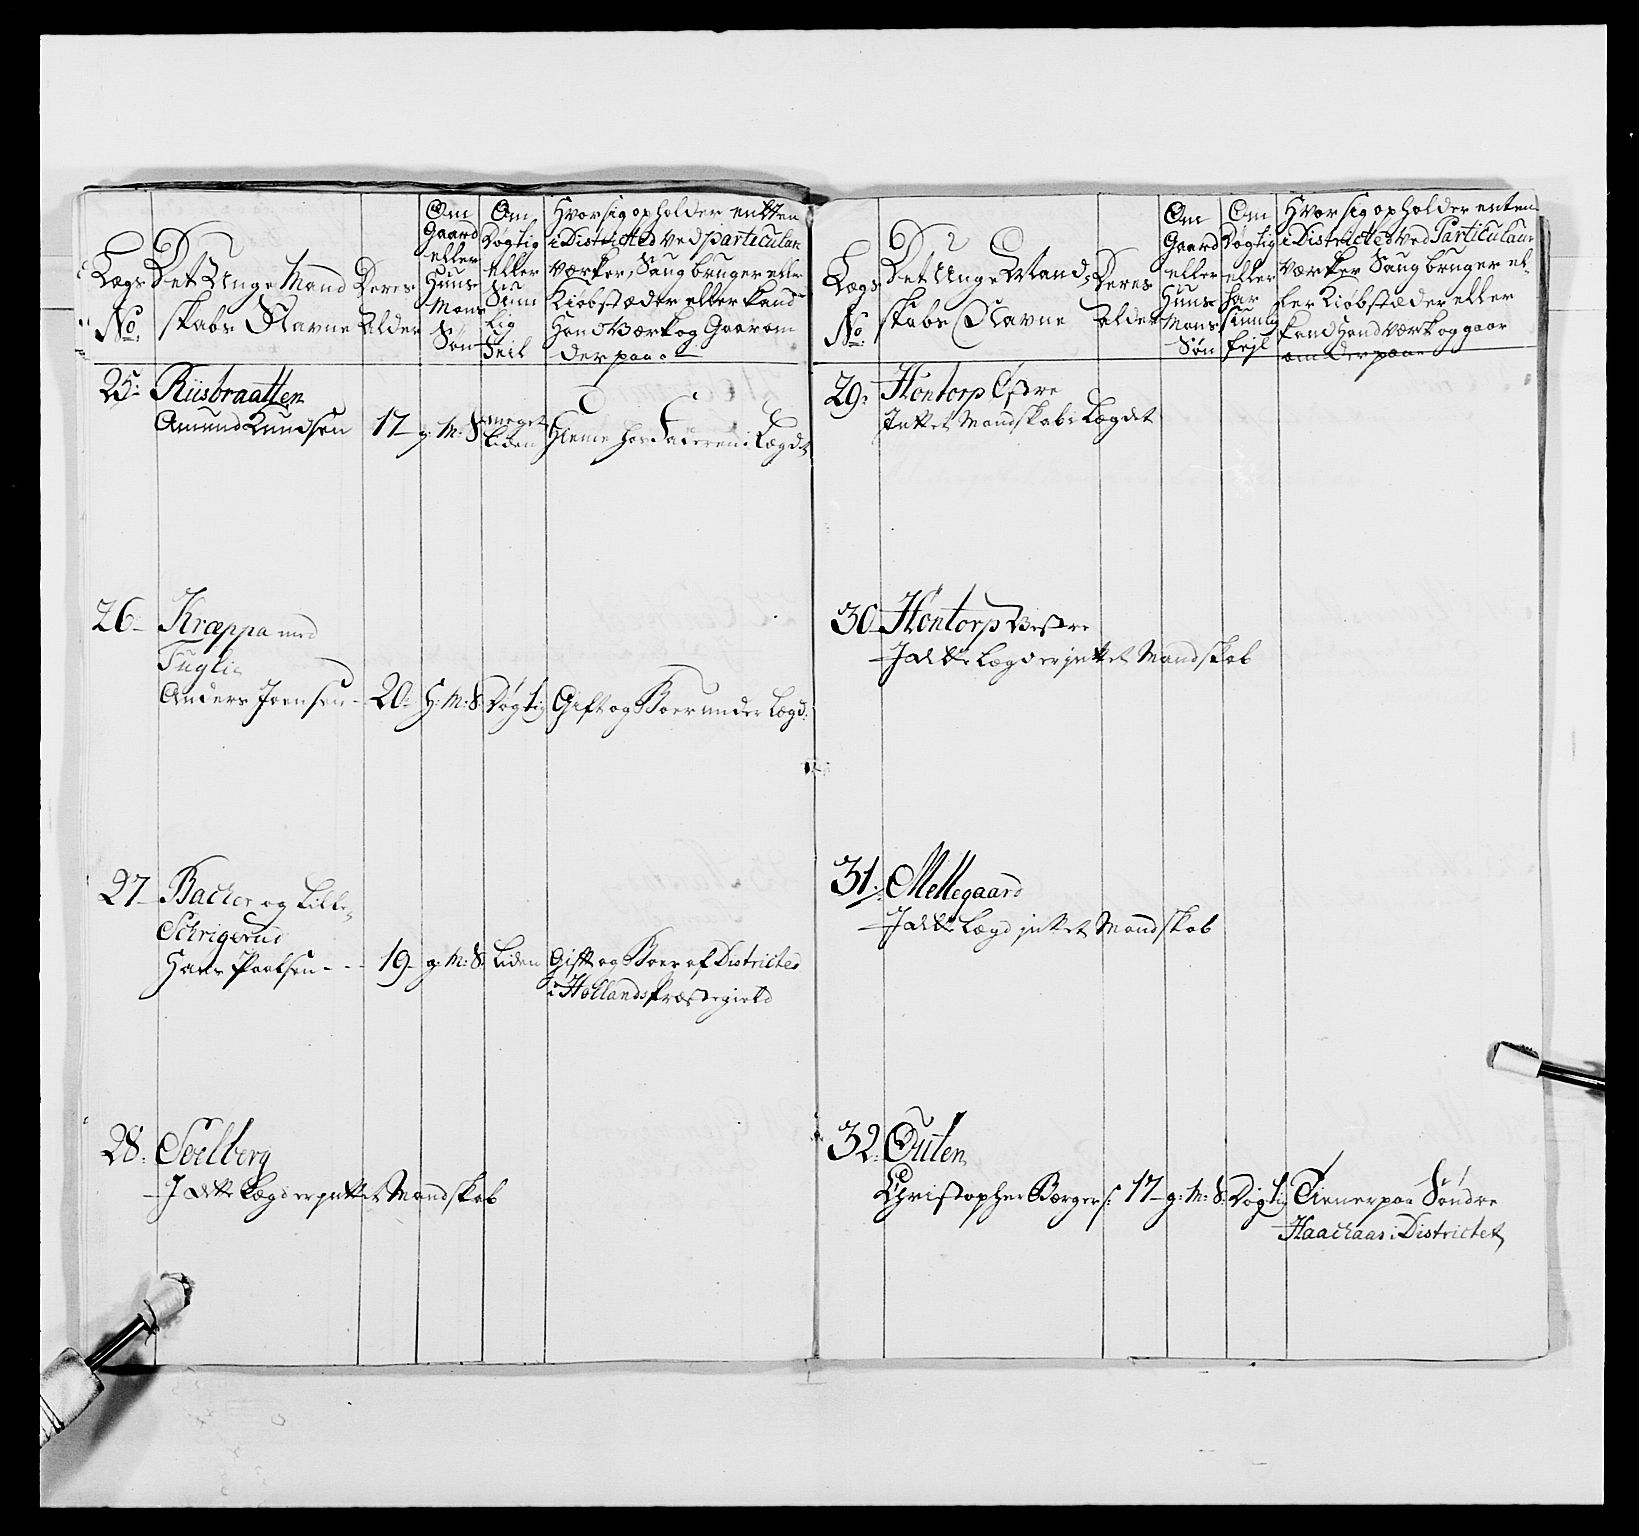 Lægs
No
Det Unge Mand
skabs Navne
Deres
Alder
Om
Gaard
eller
Huus
Mans
Søn
Om
Døgtig
eller
Siun
lig
Feil
Hvor sig opholder entten
i Districted ved particulær
værker, Saugbruger eller
Kiøbstæder eller kand
Handværk og Gaar om
der paa
25. Riisbraatten
Amund Knudsen 17 g: M: S meget liden Hieme hos Faderen i Lægdet
26 Kræppa med
Fuglie
Anders Joensen - 20. H: M: S. Døgtig Gift og Boer under Lægd:
27 Bacher og Lille
Schrigerud
Hans Poelsen - - - 19 g: M: S. Liden Gift og Boer af Districted
i Hollands Præstegield
28. Soelberg
I dette Lægd er jntet Mandskab
Lægs
No
Det Unge Mand
skabs Navne
Deres
Alder
Om
Gaard
eller
Huus
Mans
Søn
Om
Døgtig
eller
har
siunlig
fejl
Hvor sig opholder enten
i Districted ved Particulair
værker Saugbruger el-
ler Kiøbstæder eller
kand Handværk og gaar
om der paa
29. Hontorp Estre
Jntet Mandskab i Lægdet
30 Hontorp Vestre
I dette Lægd er jntet Mandskab
31. Mellegaard
I dette Lægd jntet Mandskab
32. Outen
Christopher Børgers: 17 g: M: S: Døgtig Tiener paa Søndre
Haachaas i Districtet